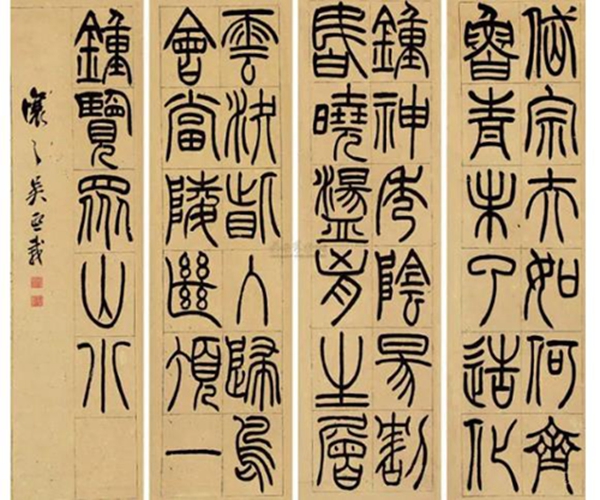 岱宗夫如何齊
魯青未了造化
鍾神秀陰昜割
昏曉盪胷生層
雲決眥入歸鳥
會當陵絕頂一
鍾覽眾山小
讓之吳熙載